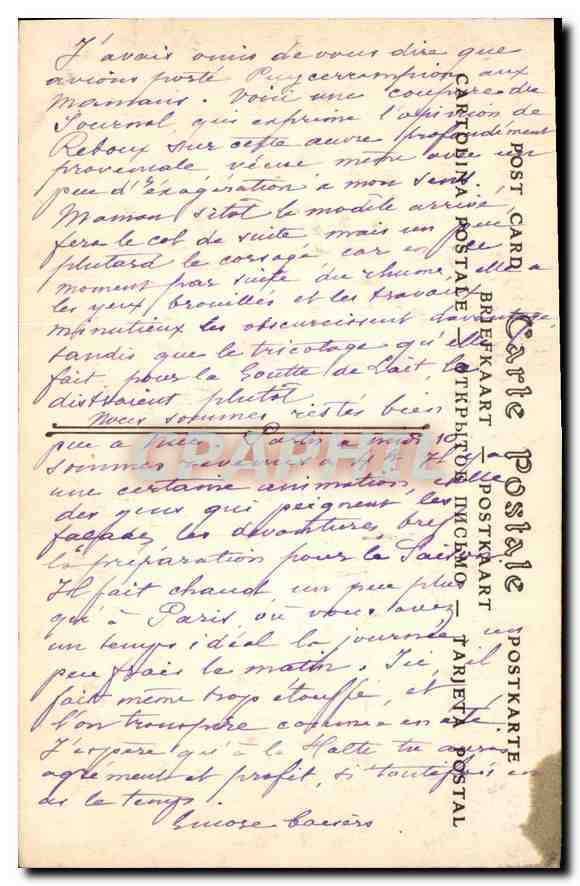 J'avais omis de vous dire que
avions porté Puycerrampion aux
Mamans. Voici une coupure du
Journal, qui exprime l'opinion de
Reboux sur cette œuvre profondément
provinciale, vécue même avec un
peu d'exagération à mon sens.
Maman sitôt le modèle arrivé,
fera le col de suite mais un peu
plutard le corsage car en ce
moment par suite du rhume, elle a
les yeux brouillés et les travaux
minutieux les obscurcissent davantage,
tandis que le tricotage qu'elle
fait pour la Goutte de Lait, la
distraient plutôt.
Nous sommes restés bien
peu à Paris à midi
sommes revenus à 4h. Il y a
une certaine animation, celle
des gens qui peignent les
façades, les devantures bref
la préparation pour la Saison
Il fait chaud un peu plus
qu'à Paris, où vous avez
un temps idéal la journée, un
peu frais le matin. Ici, il
fait même trop étouffé, et
l'on transpire comme en été.
J'espère qu'à la Halte tu auras
agrément et profit, si toutefois en
as le temps.
baisers
CARTOLINA POSTALE — ОТКРЫТОЕ ПИСЬМО — TARJETA POSTAL
BRIEFKAART — POSTKAART
Carte Postale
POST CARD
POSTKARTE
CPAPHIL